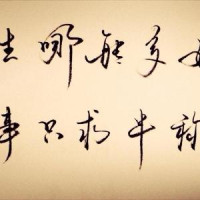 生哪能多如
事只求半称